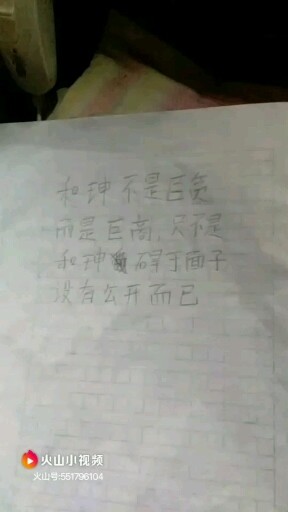 和珅不是巨贪
而是巨高，只不是
和珅碍于面子
没有公开而已
火山小视频
火山号:551796104